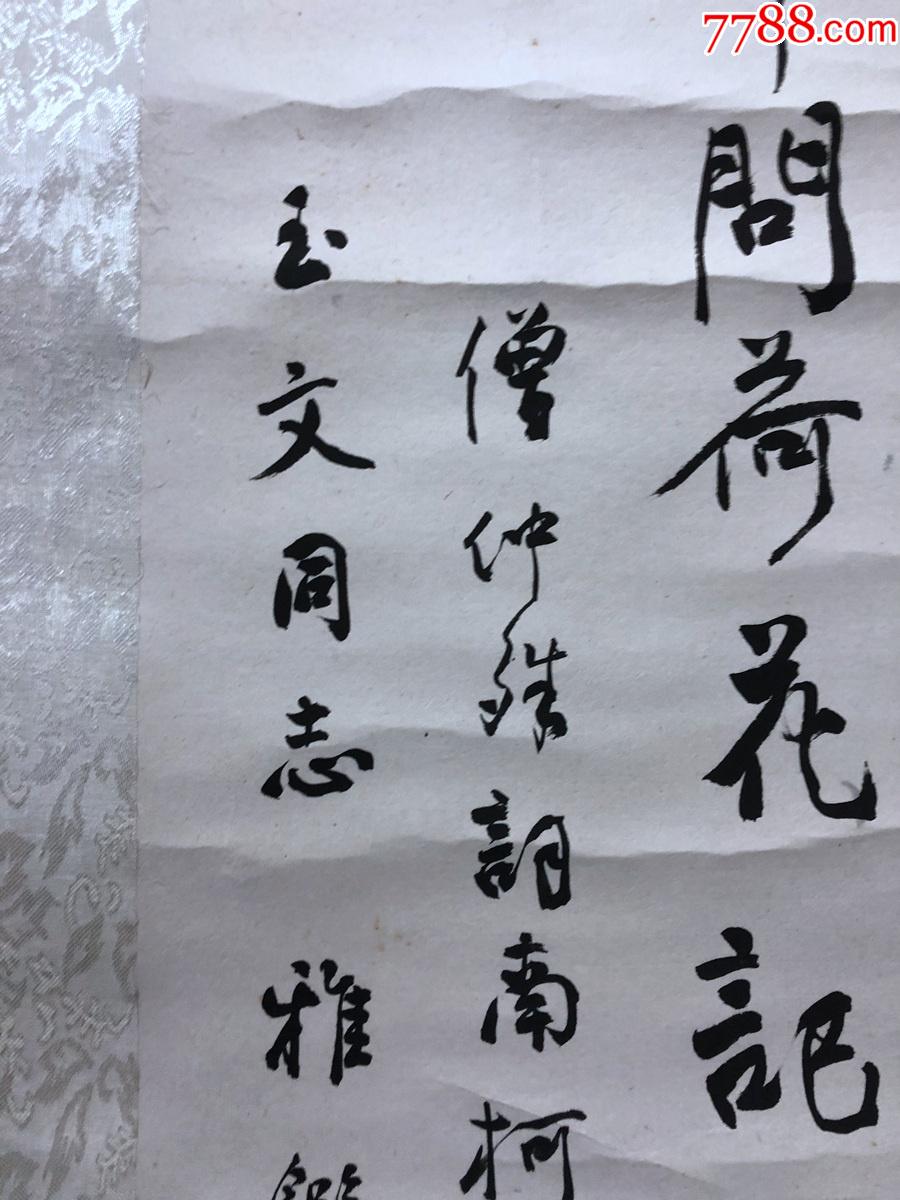 7788.com
問荷花記
僧仲殊詞南柯
玉文同志雅鑑